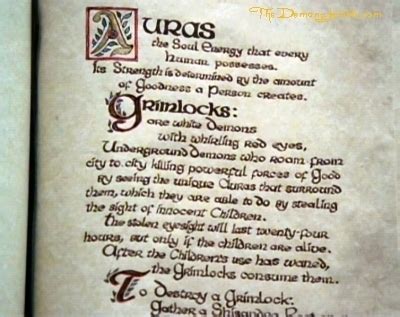 TheDemonsJewels.com
AURAS
the Soul Energy that every
human possesses.
Its Strength is determined by the amount
of Goodness a Person creates.
Grimlocks:
are white Demons
with whirling red eyes,
Underground Demons who roam from
city to city killing powerful forces of Good
by seeing the unique Auras that surround
them, which they are able to do by stealing
the sight of innocent Children.
The stolen eyesight will last twenty-four
hours, but only if the children are alive.
After the Children's use has waned,
the Grimlocks consume them.
To Destroy a Grimlock:
Gather a Shisandra